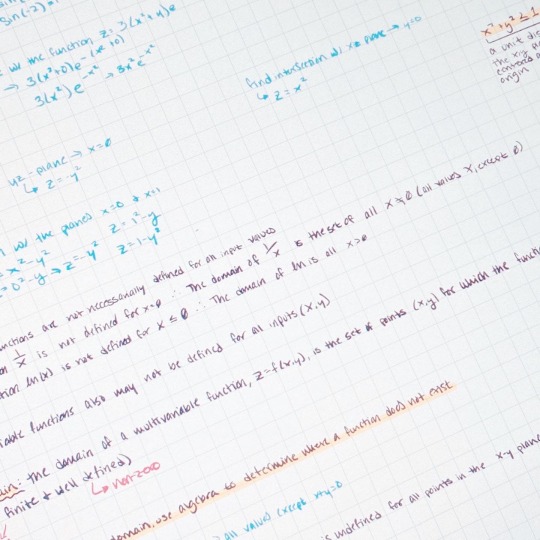 sin(-2)=
w/ the function z=3(x²+y)e
→ 3(x²+0)e^-(x²+0)
3(x²)e^-x² → 3x²e^-x²
find intersection w/ xz plane → y=0
↳ z=x²
x²+y² ≤ 1
a unit dis
the xy pla
centered a
origin
yz-plane → x=0
↳ z=-y²
w/ the planes x=0 & x=1
=x²-y² z=1²-y
=0²-y → z=-y² z=1-y²
nctions are not necessarily defined for all input values
1/x is not defined for x=0 ∴ The domain of 1/x is the set of all x≠0 (all values x, except 0)
tion ln(x) is not defined for x ≤ 0 ∴ The domain of ln is all x>0
iable functions also may not be defined for all inputs (x,y)
ain: the domain of a multivariable function, z=f(x,y), is the set of points (x,y) for which the functi
finite + well defined)
↳ not ±∞
domain, use algebra to determine where a function does not exist
all values except x+y=0
is undefined for all points in the x-y plane